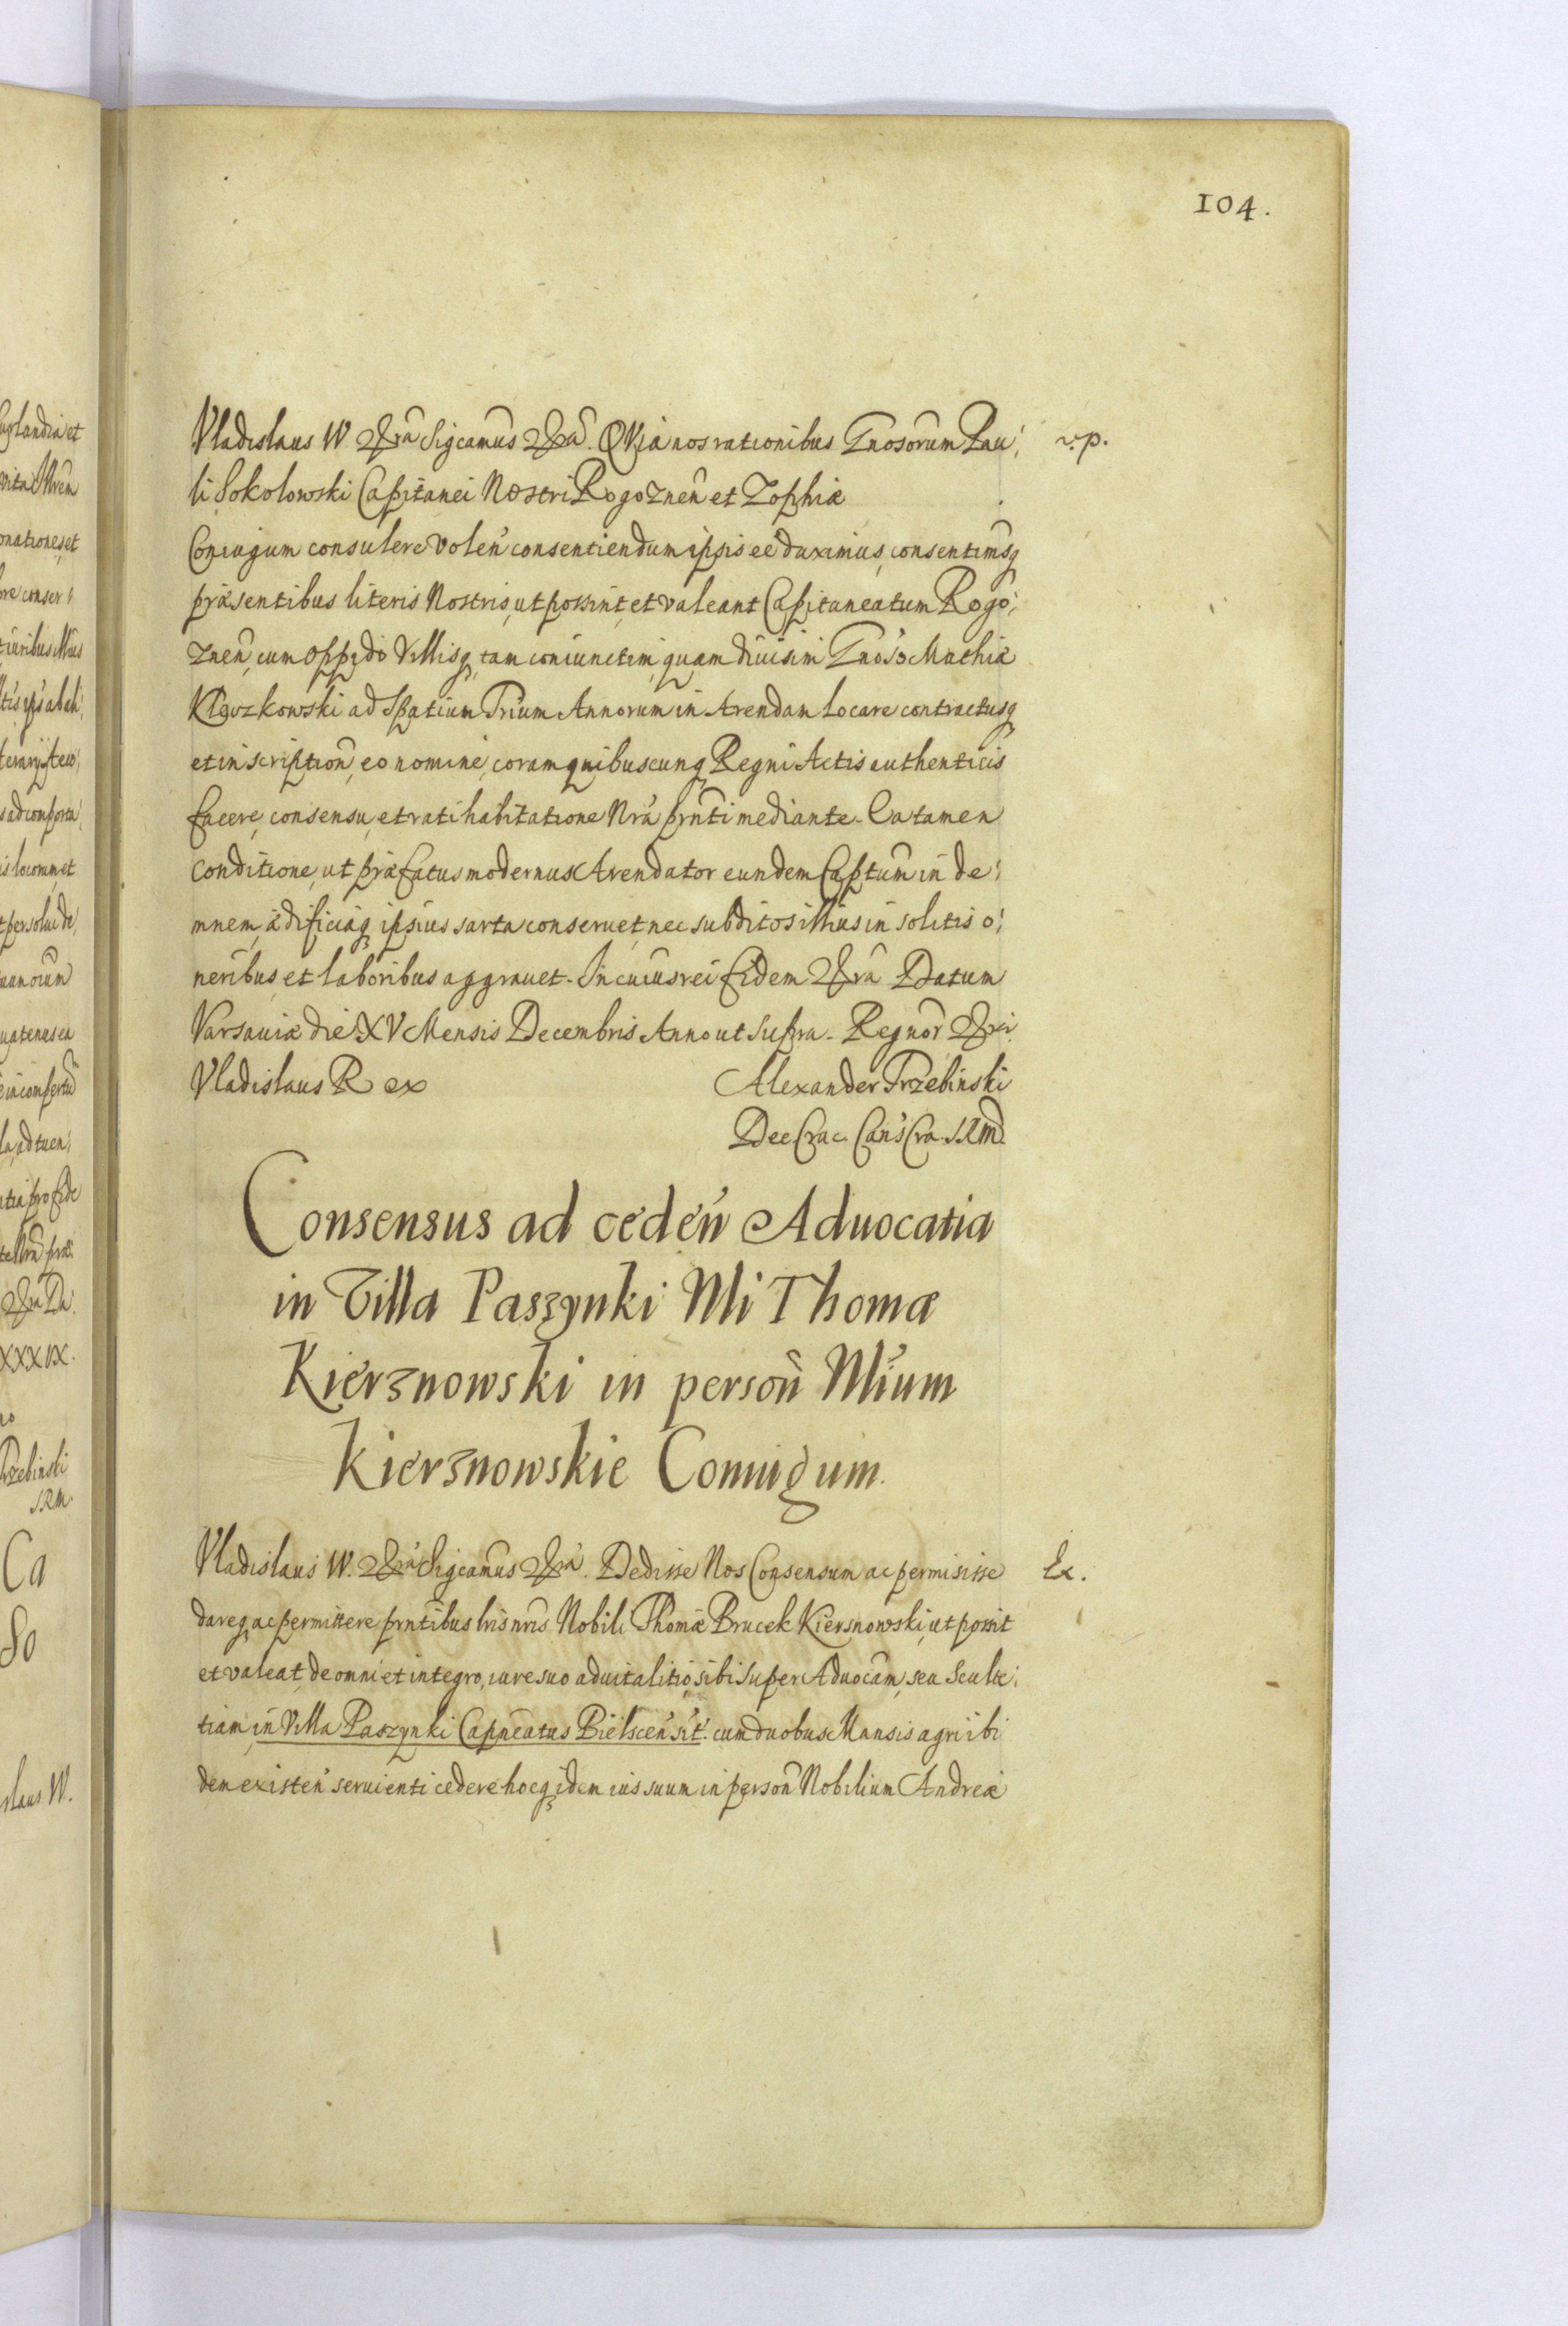 104.
Vladislaus W. &ra Sigcamus &ra. QVia nos rationibus Gnosorum Pau:
v.p.
li Sokolowski Capitanei Nostri Rogoznen et Zophiæ
Coniugum consulere volen consentiendum ipsis ee duximus, consentimusq
præsentibus literis Nostris, ut possint, et valeant Capitaneatum Rogo:
znen, cum Oppido Villisq, tam coniunctim, quam divisim Gnoso Mathiæ
Kloszkowski ad Spatium Trium Annorum in Arendam Locare contractusq
et inscription, eo nomine, coram quibuscunq Regni Actis authenticis
facere, consensu, et ratihabitatione Nra prnti mediante. Ea tamen
conditione, ut præfatus modernus Arendator eundem Captum in de:
mnem, ædificiaq ipsius sarta conseruet, nec subditos illius in solitis o:
neribus, et laboribus aggrauet. In cuius rei fidem &ra Datum
Varsauiæ die XV Mensis Decembris Anno ut Supra. Regnor &ri.
Vladislaus Rex Alexander Trzebinski
Dec Crac. Cans Cra. S.R.M.
Consensus ad ceden Aduocatia
in Villa Paszynki Nli Thomæ
Kierznowski in person Nlium
Kierznowskie Coniugum.
Vladislaus W. &ra Sigcamus &ra. Dedisse Nos Consensum ac permisisse
Ex.
dareq, ac permittere prntibus lris nris Nobili Thomæ Brucek Kiersnowski, ut possit
et valeat, de omni et integro, iure suo aduitalitio, sibi Super Aduocam, seu Sculte:
tiam, in Villa Paszynki Capneatus Bielscen sit. cum duobus Mansis agri ibi
dem existen seruienti cedere hocq, idem ius suum in person Nobilium Andreæ